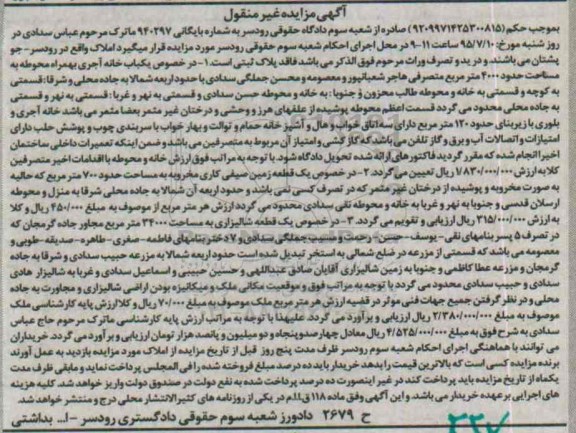 آگهی مزایده غیر منقول
بموجب حکم(۹۲۰۹۹۷۱۴۲۵۳۰۰۸۱۵) صادره از شعبه سوم دادگاه حقوقی رودسر به شماره بایگانی ۹۴۰۲۹۷ ماترک مرحوم عباس سدادی در
روز شنبه مورخ: ۹۵/۷/۱۰ ساعت ۱۱-۹ در محل اجرای احکام شعبه سوم حقوقی رودسر مورد مزایده قرار میگیرد املاک واقع در رودسر- جو
پشتان می باشند. و در ید و تصرف وراث مرحوم فوق الذکر می باشد فاقد پلاک ثبتی است. ۱- در خصوص یکباب خانه آجری بهمراه محوطه به
مساحت حدود ۴۰۰۰ متر مربع متصرفی هاجر شعبانپور و معصومه و محسن جملگی سدادی با حدود اربعه شمالا به جاده محلی و شرقا: قسمتی
به کوچه و قسمتی به خانه و محوطه طالب مخزون و جنوبا: به خانه و محوطه حسن سدادی و قسمتی به نهر و غربا: قسمتی به نهر و قسمتی
به جاده محلی محدود می گردد قسمت اعظم محوطه پوشیده از علفهای هرز و وحشی و درختان غیر مثمر بعضا مثمر می باشد خانه آجری و
بلوری با زیربنای حدود ۱۲۰ متر مربع دارای سه اتاق خواب و هال و آشپز خانه حمام و توالت و بهار خواب با سربندی چوب و پوشش حلب دارای
امتیازات و اتصالات آب و برق و گاز تلفن می باشد که گاز کشی و امتیاز آن مربوط به متصرفین می باشد و ضمن اینکه تعمیرات داخلی ساختمان
اخیرا انجام شده که مقرر گردید فاکتورهای ارائه شده تحویل دادگاه شود. با توجه به مراتب فوق ارزش خانه و محوطه با اقدامات اخیر متصرفین
کلا به ارزش ۱/۸۳۰/۰۰۰/۰۰۰ ریال تعیین می گردد. ۲- در خصوص یک قطعه زمین صیفی کاری مخروبه به مساحت حدود ۷۰۰ متر مربع که حالیه
به صورت مخروبه و پوشیده از درختان غیر مثمر که در تصرف کسی نمی باشد و حدود اربعه آن شمالا به جاده محلی شرقا به منزل و محوطه
ارسلان قدسی و جنوبا به نهر و غربا به خانه و محوطه تقی سدادی محدود می گردد ارزش هر متر مربع از موصوف به مبلغ ۴۵۰/۰۰۰ ریال و کلا
به ارزش ۳۱۵/۰۰۰/۰۰۰ ریال ارزیابی و تقویم می گردد. ۳- در خصوص یک قطعه شالیزاری به مساحت ۳۴۰۰۰ متر مربع مجاور جاده گرمجان که
در تصرف ۵ پسر بنامهای نقی- یوسف - حسن - رحمت و مسیب جملگی سدادی و ۷ دختر بنامهای فاطمه- صغری- طاهره- صدیقه- طوبی و
معصومه می باشد که قسمتی از مزرعه در ضلع شمالی به استخر تبدیل شده است حدود اربعه شمالا به مزرعه حبیب سدادی و شرقا به جاده
گرمجان و مزرعه عطا کاظمی و جنوبا به زمین شالیزاری آقایان صادق عبداللهی و حسین حبیبی و اسماعیل سدادی و غربا به شالیزار هادی
سدادی و حبیب سدادی محدود می گردد با توجه به مراتب فوق و موقعیت مکانی ملک و میکانیزه بودن اراضی شالیزاری و مجاورت به جاده
محلی و در نظر گرفتن جمیع جهات فنی موثر در قضیه ارزش هر متر مربع ملک موصوف به مبلغ ۷۰/۰۰۰ ریال و کلا ارزش پایه کارشناسی ملک
موصوف به مبلغ ۲/۳۸۰/۰۰۰/۰۰۰ ریال ارزیابی و برآورد می گردد. علیهذا با توجه به مراتب ارزش پایه کارشناسی ماترک مرحوم حاج عباس
سدادی به شرح فوق به مبلغ ۴/۵۲۵/۰۰۰/۰۰۰ ریال معادل چهارصد و پنجاه و دو میلیون و پانصد هزار تومان ارزیابی و برآورد می گردد. خریداران
می توانند با هماهنگی اجرای احکام شعبه سوم رودسر ظرف مدت پنج روز قبل از تاریخ مزایده از املاک مورد مزایده بازدید به عمل آورند
برنده مزایده کسی است که بالاترین قیمت را بدهد خریدار باید ده درصد مبلغ فروخته شده را فی المجلس پرداخت نماید و مابقی ظرف مدت
یکماه از تاریخ مزایده باید پرداخت کند در غیر اینصورت ده درصد پرداخت شده به نفع دولت در صندوق دولت واریز خواهد شد. کلیه هزینه
های اجرایی بر عهده خریدار می باشد. و این آگهی وفق ماده ۱۱۸ ق.ا.م در یکی از روزنامه های کثیرالانتشار محلی درج و منتشر خواهد شد.
ح ۲۶۷۹ دادورز شعبه سوم حقوقی دادگستری رودسر -ا... بداشتی
۲۲۷